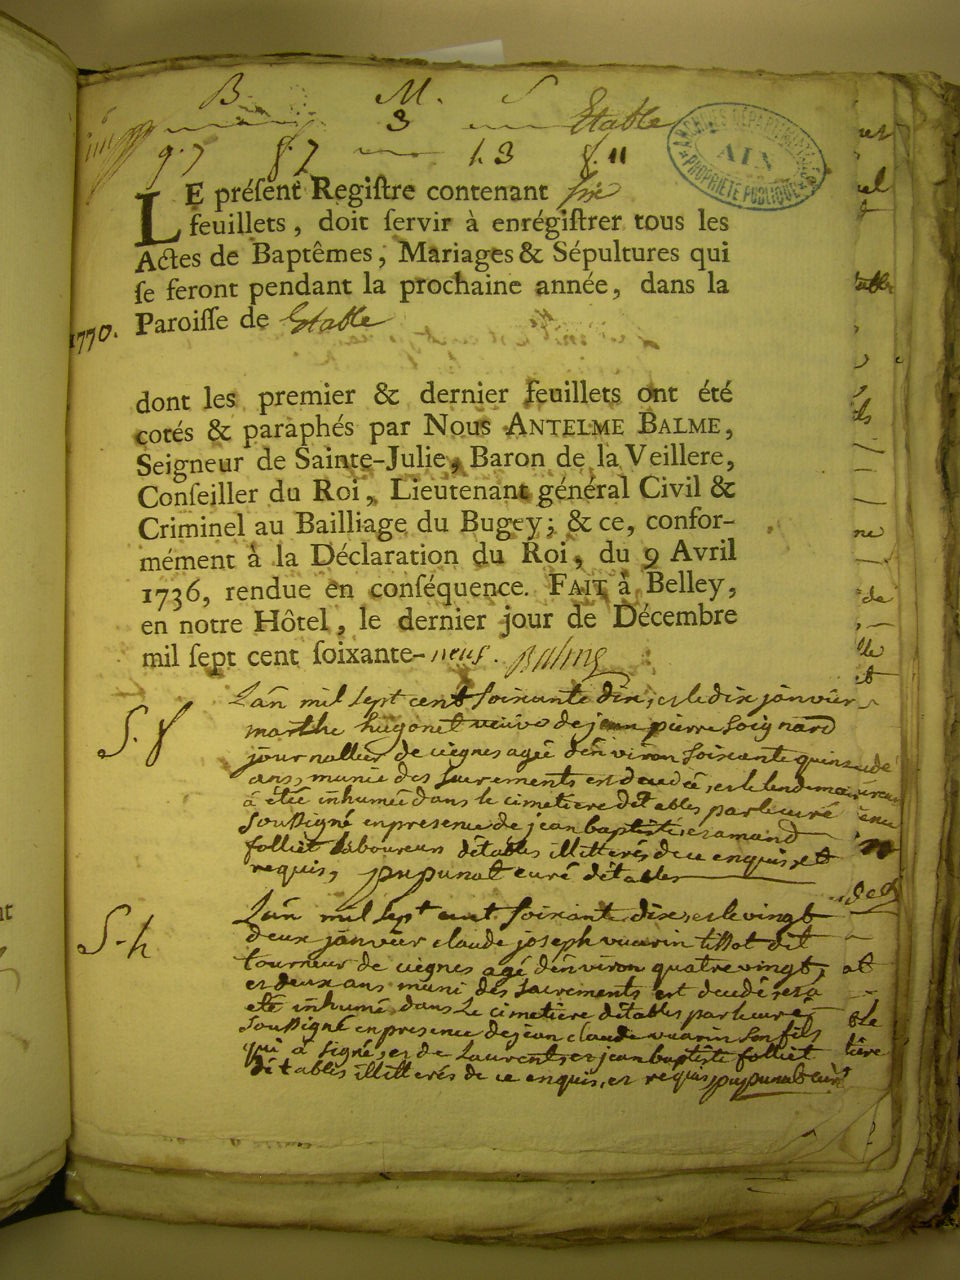 B. M. S
3 Etable
9. 7 f. 7 1. 3 f. 11
ARCHIVES DÉPARTEMENTALES
AIN
PROPRIÉTÉ PUBLIQUE
LE préſent Regiſtre contenant ſix
feuillets, doit ſervir à enrégiſtrer tous les
Actes de Baptêmes, Mariages & Sépultures qui
ſe feront pendant la prochaine année, dans la
1770. Paroiſſe de Estable
dont les premier & dernier feuillets ont été
cotés & paraphés par Nous ANTELME BALME,
Seigneur de Sainte-Julie, Baron de la Veillere,
Conſeiller du Roi, Lieutenant général Civil &
Criminel au Bailliage du Bugey; & ce, confor-
mément à la Déclaration du Roi, du 9 Avril
1736, rendue en conſéquence. FAIT à Belley,
en notre Hôtel, le dernier jour de Décembre
mil ſept cent ſoixante-neuf. Balme
L'an mil sept cent soixante dix, et le dix janvier
S. f marthe hugonet veuve de jean pierre soignard
journallier de ciegnes agée d'environ soixante quinze
ans, munie des sacrements est decedée, et le lendemain
à étée inhumée dans le cimetiere détables par le curé
soussigné en presence de jean baptiste, et amand
folliet laboureurs détables illitterés de ce enquis, et
requis, pupunat curé détables
L'an mil sept cent soixante dix, et le vingt
S. h deux janvier claude joseph vuarin tissot dit
tourneur de ciegnes agé d'environ quatre vingt,
et deux ans muni des sacrements est decedé, et a
eté inhumé dans le cimetiere détables par le curé
soussigné en presence de jean claude vuarin son fils
qui a signé, et de Laurent, et jean baptiste folliet
détables illitterés de ce enquis, et requis pupunat curé